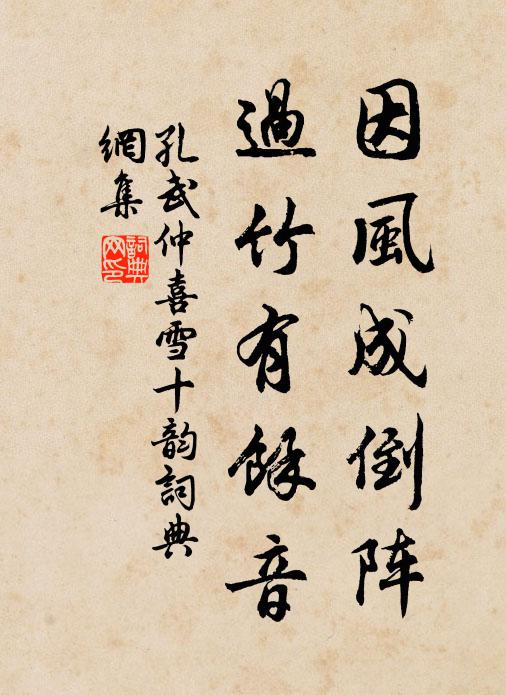 因風成倒阵
過竹有餘音
孔武仲喜雪十韵詞典
網集
詞典网印